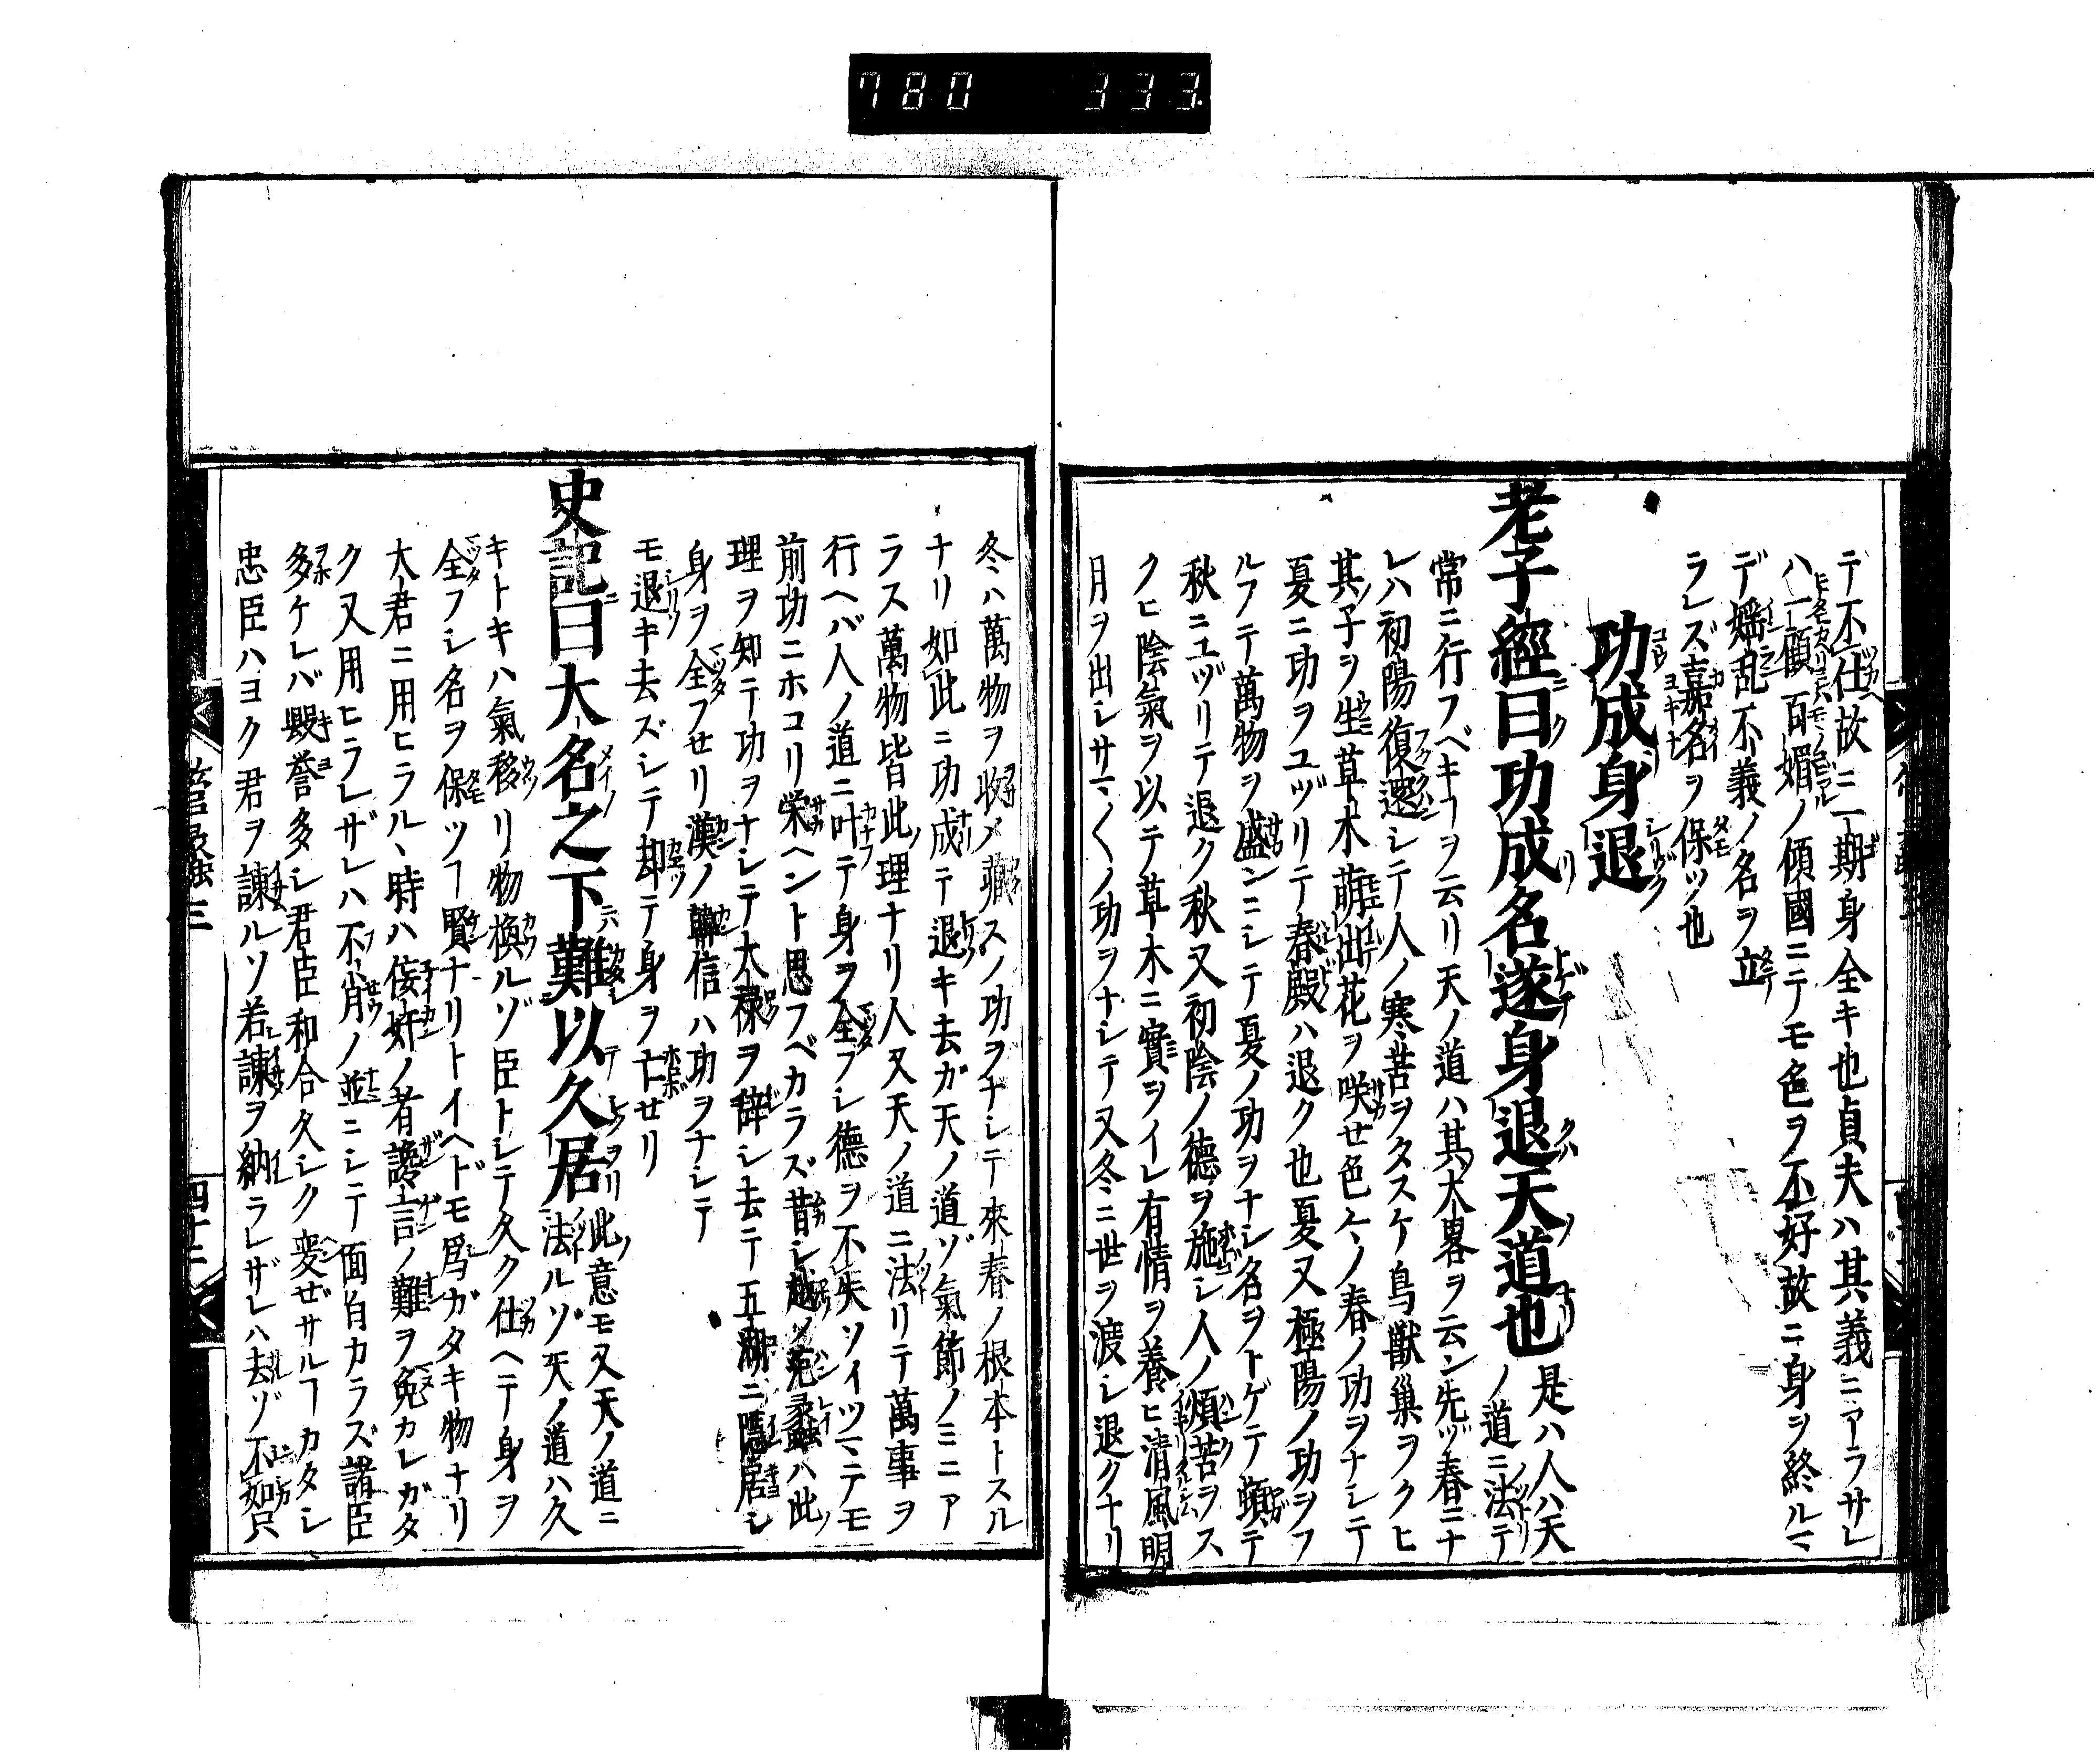 780 333
テ不仕故ニ一期身全キ也貞夫ハ其義ニアラサレ
ハ一顧百媚ノ傾國ニテモ色ヲ不好故ニ身ヲ終ルマ
デ婬乱不義ノ名ヲ立
ラレズ嘉名ヲ保ツ也
功成身退
老子經曰功成名遂身退天道也 是ハ人ハ天
ノ道ニ法テ
常ニ行フベキヿヲ云リ天ノ道ハ其大畧ヲ云ン先ヅ春ニナ
レハ初陽復還シテ人ノ寒苦ヲタスケ鳥獣巣ヲクヒ
其子ヲ生草木萌出花ヲ咲せ色々ノ春ノ功ヲナシテ
夏ニ功ヲユヅリテ春殿ハ退ク也夏又極陽ノ功ヲフ
ルフテ萬物ヲ盛ンニシテ夏ノ功ヲナシ名ヲトゲテ頓テ
秋ニユヅリテ退ク秋又初陰ノ德ヲ施シ人ノ煩苦ヲス
クヒ陰氣ヲ以テ草木ニ實ヲイレ有情ヲ養ヒ清風明
月ヲ出シサマ〱ノ功ヲナシテ又冬ニ世ヲ渡シ退クナリ
冬ハ萬物ヲ收メ藏スノ功ヲナシテ來春ノ根本トスル
ナリ如此ニ功成テ退キ去ガ天ノ道ゾ氣節ノミニア
ラス萬物皆此理ナリ人又天ノ道ニ法リテ萬事ヲ
行ヘバ人ノ道ニ叶テ身ヲ全フシ德ヲ不失ソイツマテモ
前功ニホコリ栄ヘント思フベカラズ昔シ越ノ范蠡ハ此
理ヲ知テ功ヲナシテ大禄ヲ辞シ去テ五湖ニ隱居シ
身ヲ全フせリ漢ノ韓信ハ功ヲナシテ
モ退キ去ズシテ却テ身ヲ亡せリ
史記曰大名之下難以久居 此意モ又天ノ道ニ
法ルゾ天ノ道ハ久
キトキハ氣移リ物換ルゾ臣トシテ久ク仕ヘテ身ヲ
全フシ名ヲ保ツヿ賢ナリトイヘドモ爲ガタキ物ナリ
大君ニ用ヒラル丶時ハ侫奸ノ者讒言ノ難ヲ免カレガタ
ク又用ヒラレザレハ不肖ノ並ニシテ面白カラズ諸臣
多ケレバ毀誉多シ君臣和合久シク変ぜサルヿカタシ
忠臣ハヨク君ヲ諫ルソ若諫ヲ納ラレザレハ去ゾ不如只
管蠡三
四十二